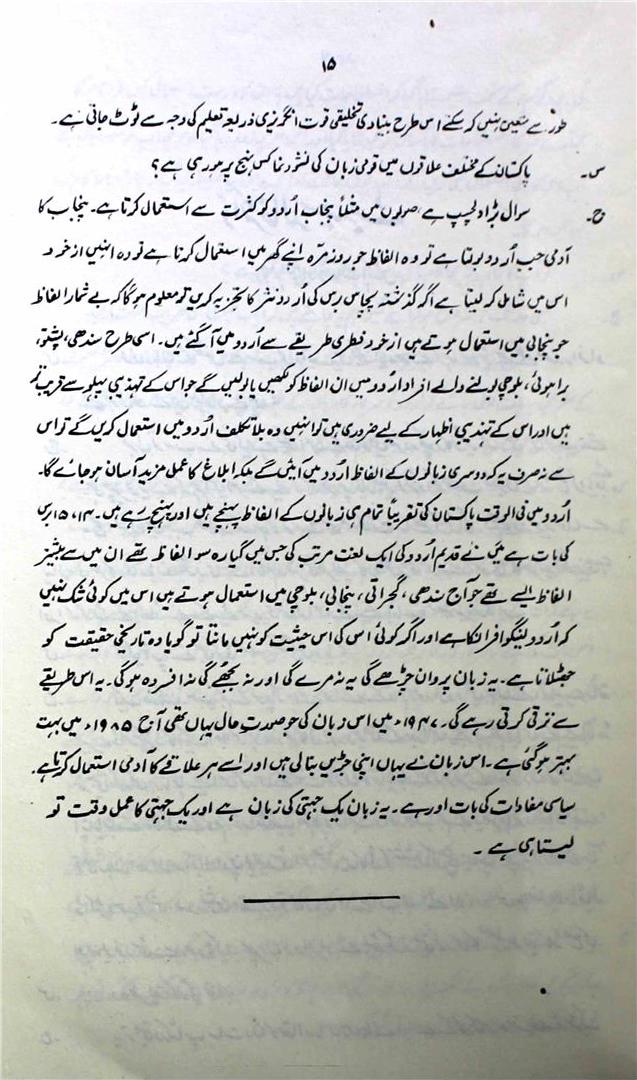 ۱۵
طور سے متعین نہیں کر سکے اس طرح بنیادی تخلیقی قوت انگریزی ذریعہ تعلیم کی وجہ سے ٹوٹ جاتی ہے۔
س۔ پاکستان کے مختلف علاقوں میں قومی زبان کی نشوونما کس نہج پر ہو رہی ہے؟
ج۔ سوال بڑا دلچسپ ہے، صوبوں میں مثلاً پنجاب اُردو کو کثرت سے استعمال کرتا ہے۔ پنجاب کا
آدمی جب اُردو بولتا ہے تو وہ الفاظ جو روزمرّہ اپنے گھر میں استعمال کرتا ہے تو وہ انہیں از خود
اس میں شامل کر لیتا ہے اگر گذشتہ پچاس برس کی اُردو نثر کا تجزیہ کریں تو معلوم ہوگا کہ بے شمار الفاظ
جو پنجابی میں استعمال ہوتے ہیں از خود فطری طریقے سے اُردو میں آگئے ہیں۔ اسی طرح سندھی، پشتو،
براہوئی، بلوچی بولنے والے افراد اُردو میں ان الفاظ کو لکھیں یا بولیں گے جو اس کے تہذیبی پہلو سے قریب تر
ہیں اور اس کے تہذیبی اظہار کے لیے ضروری ہیں تو انہیں وہ بلا تکلف اُردو میں استعمال کریں گے تو اس
سے نہ صرف یہ کہ دوسری زبانوں کے الفاظ اُردو میں آئیں گے بلکہ ابلاغ کا عمل مزید آسان ہو جائے گا۔
اُردو میں فی الوقت پاکستان کی تقریباً تمام ہی زبانوں کے الفاظ پہنچے ہیں اور پہنچ رہے ہیں۔ ۱۴، ۱۵ برس
کی بات ہے میں نے قدیم اُردو کی ایک لغت مرتب کی جس میں گیارہ سو الفاظ تھے ان میں سے بیشتر
الفاظ ایسے تھے جو آج سندھی، گجراتی، پنجابی، بلوچی میں استعمال ہوتے ہیں اس میں کوئی شک نہیں
کہ اُردو لینگوا فرانکا ہے اور اگر کوئی اس کی اس حیثیت کو نہیں مانتا تو گویا وہ تاریخی حقیقت کو
جھٹلاتا ہے۔ یہ زبان پروان چڑھے گی یہ نہ مرے گی اور نہ بجھے گی نہ افسردہ ہوگی۔ یہ اس طریقے
سے ترقی کرتی رہے گی۔ ۱۹۴۷ء میں اس زبان کی جو صورتِ حال یہاں تھی آج ۱۹۸۵ء میں بہت
بہتر ہوگئی ہے۔ اس زبان نے یہاں اپنی جڑیں بنالی ہیں اور اسے ہر علاقے کا آدمی استعمال کرتا ہے۔
سیاسی مفادات کی بات اور ہے۔ یہ زبان یک جہتی کی زبان ہے اور یک جہتی کا عمل وقت تو
لیتا ہی ہے۔